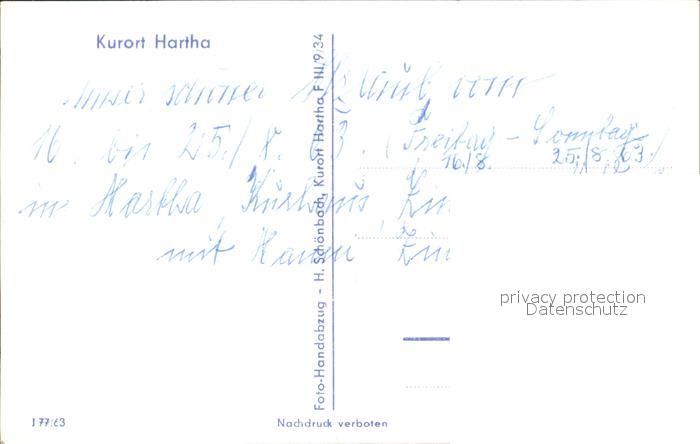 Kurort Hartha
unser schöner Urlaub vom
16. bis 25./8. 63 (Freitag - Sonntag)
16./8. 25./8. 63.
in Hartha, Kurhaus, Zim
mit Zim
Foto-Handabzug - H. Schönbach, Kurort Hartha F III/9/34
privacy protection
Datenschutz
J 77/63
Nachdruck verboten